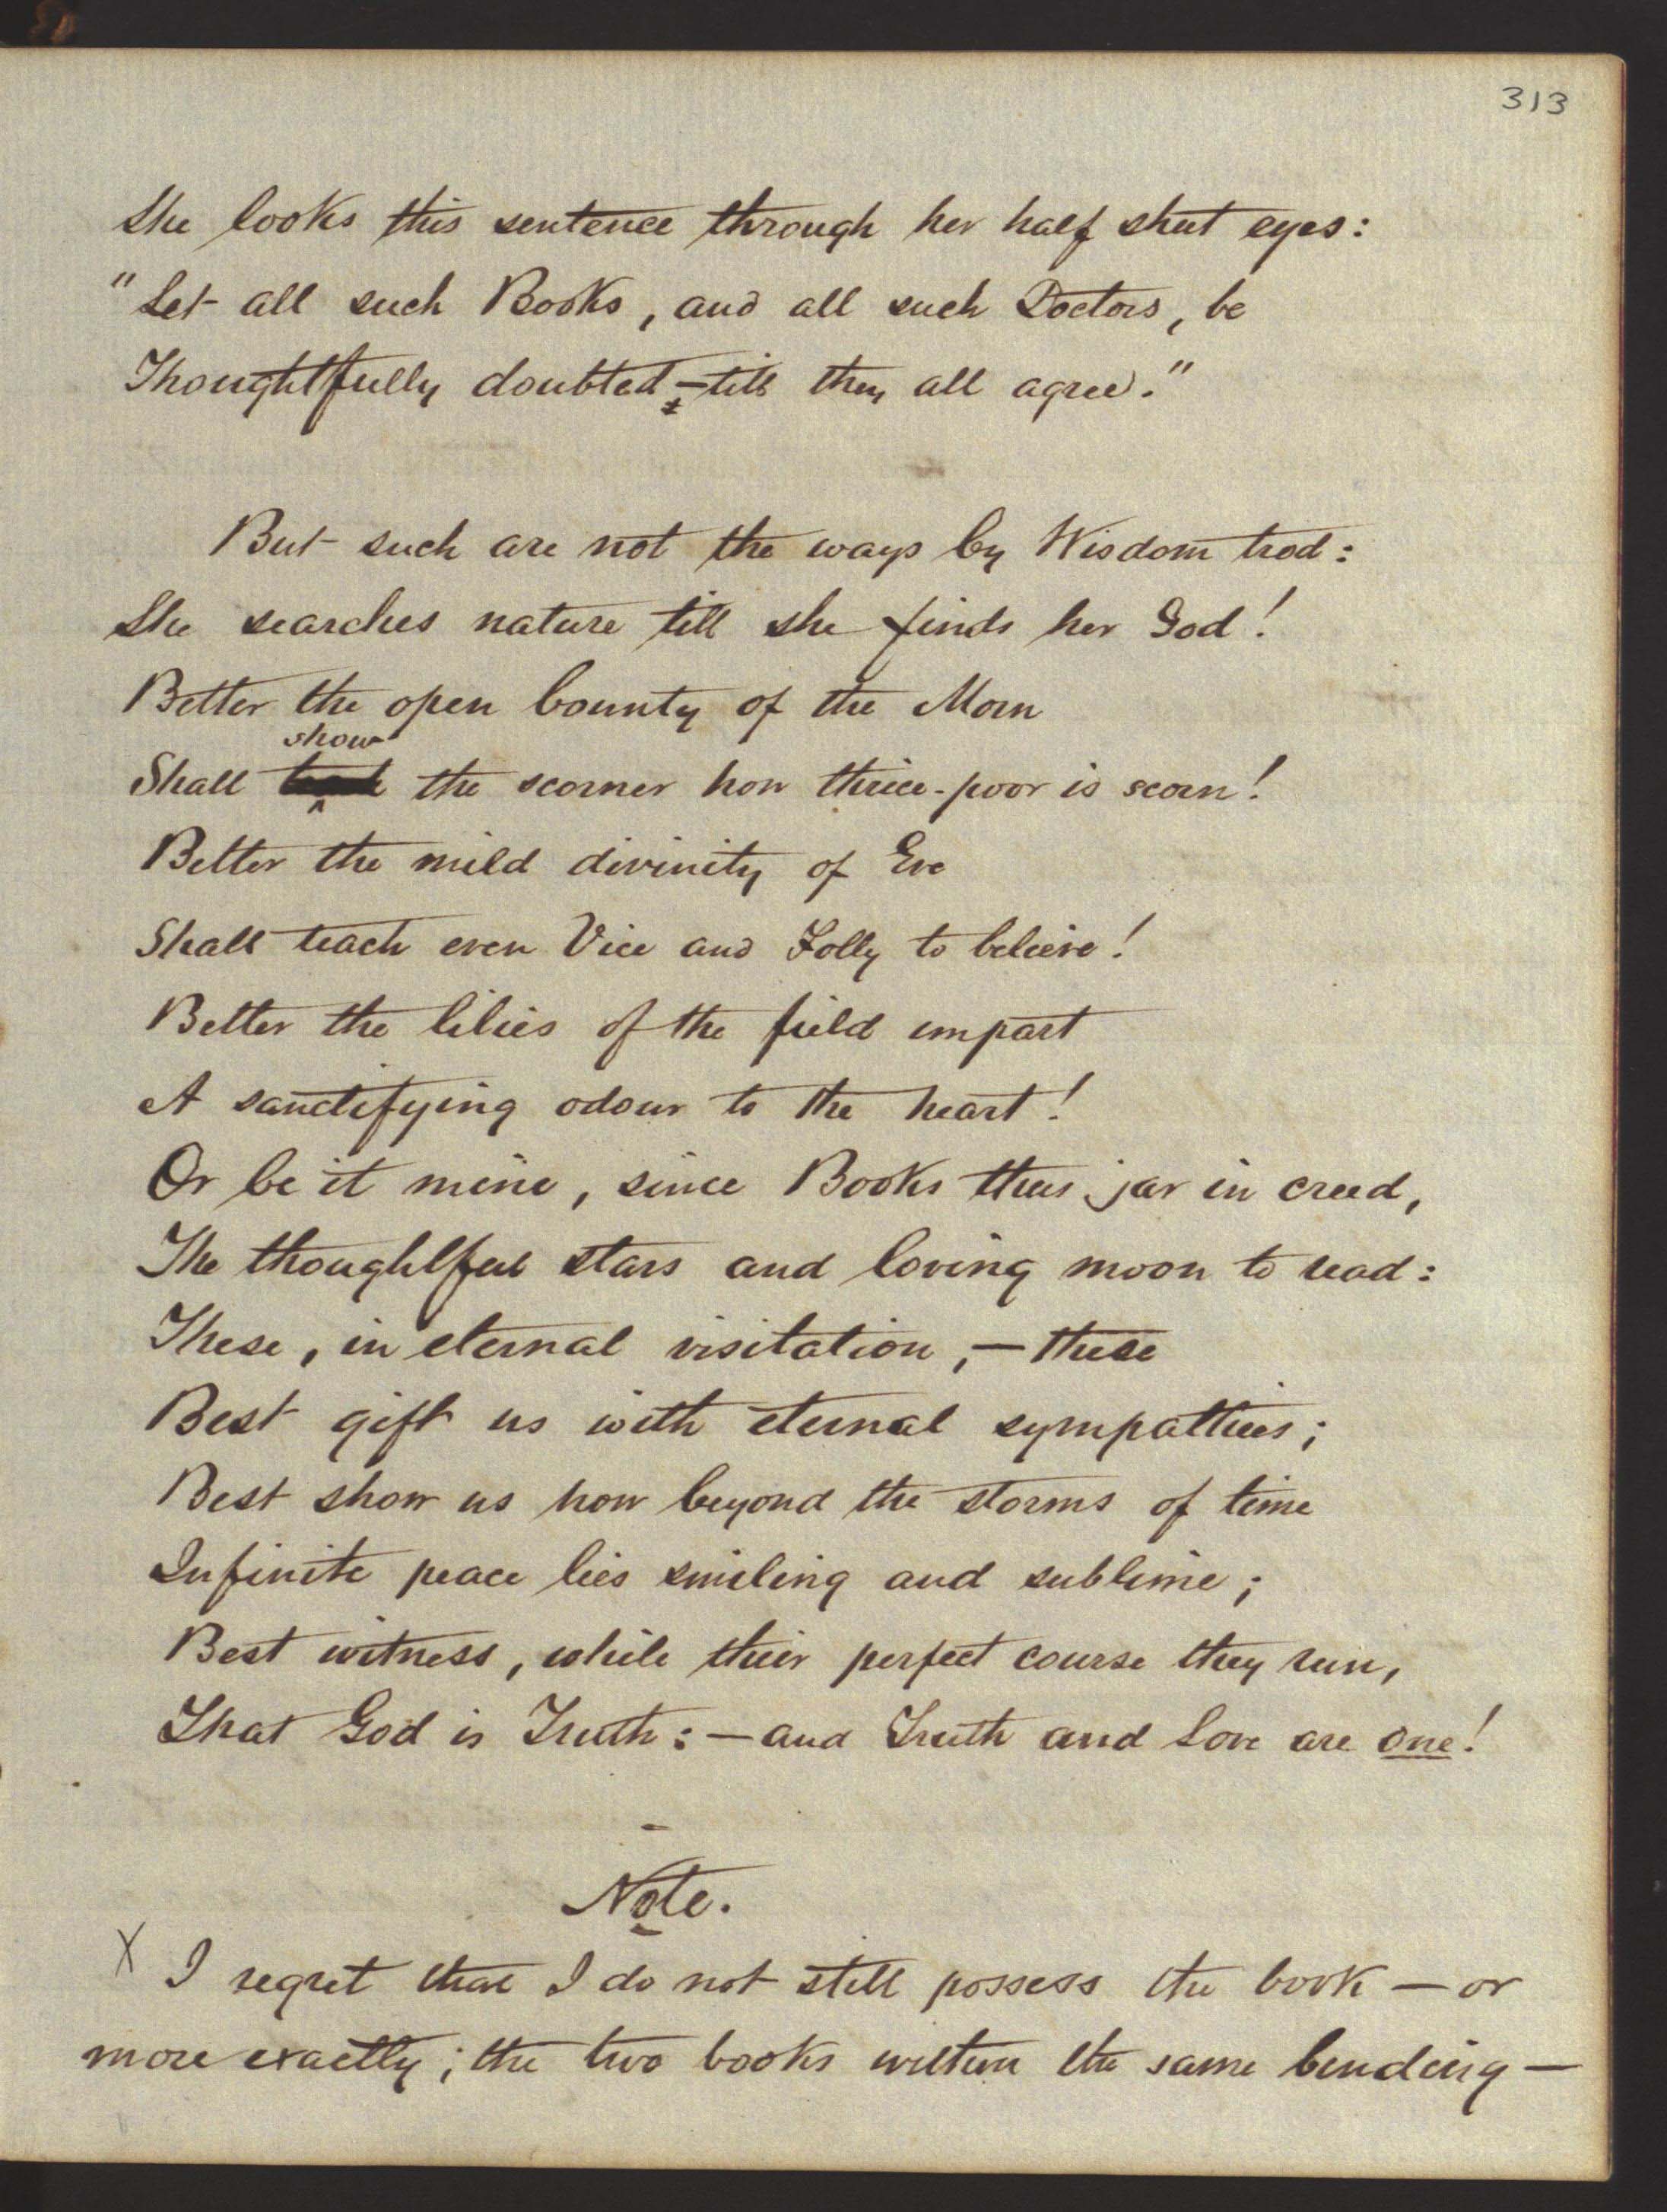 313
She looks this sentence through her half shut eyes:
"Let all such Books, and all such Doctors, be
Thoughtfully doubted – till they all agree."
But such are not the ways by Wisdom trod:
She searches nature till she finds her God!
Better the open bounty of the Morn
show
Shall the scorner how thrice-poor is scorn!
Better the mild divinity of Eve
Shall teach even Vice and Folly to believe!
Better the lilies of the field impart
A sanctifying odour to the heart!
Or be it mine, since Books thus jar in creed,
The thoughtful stars and loving moon to read:
These, in eternal visitation, — these
Best gift us with eternal sympathies;
Best show us how beyond the storms of time
Infinite peace lies smiling and sublime;
Best witness, while their perfect course they run,
That God is Truth: — and Truth and Love are one!
Note.
X I regret that I do not still possess the book — or
more exactly; the two books within the same binding —